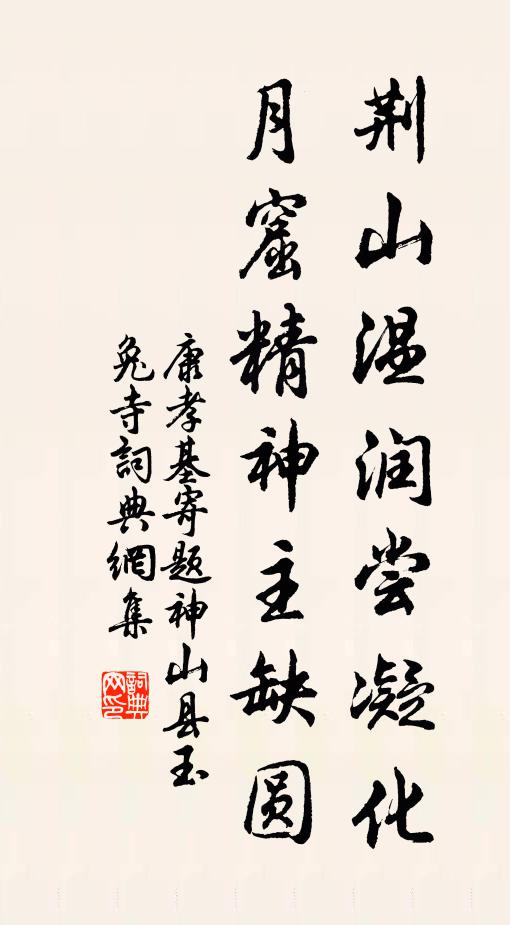 荆山温润尝凝化
月窟精神主缺圆
康孝基寄题神山县玉
兔寺詞典網集
詞典
网印